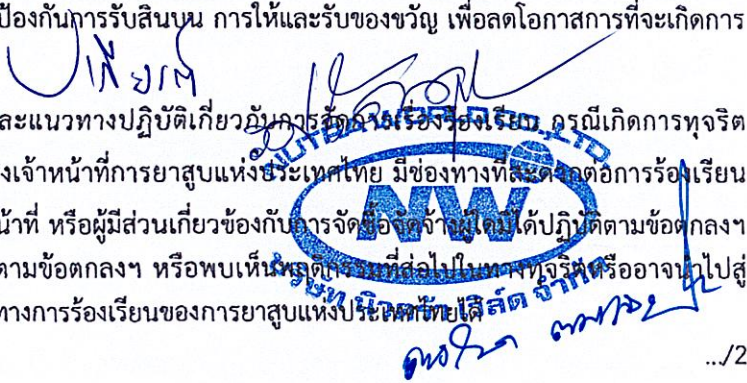 ป้องกันการรับสินบน การให้และรับของขวัญ เพื่อลดโอกาสการที่จะเกิดการ
ละแนวทางปฏิบัติเกี่ยวกับการจัดการเรื่องร้องเรียน กรณีเกิดการทุจริต
งเจ้าหน้าที่การยาสูบแห่งประเทศไทย มีช่องทางที่สะดวกต่อการร้องเรียน
น้าที่ หรือผู้มีส่วนเกี่ยวข้องกับการจัดซื้อจัดจ้างผู้ใดมิได้ปฏิบัติตามข้อตกลงฯ
ตามข้อตกลงฯ หรือพบเห็นพฤติกรรมที่ส่อไปในทางทุจริตหรืออาจนำไปสู่
ทางการร้องเรียนของการยาสูบแห่งประเทศไทยได้
NW
CO.,LTD
จำกัด
.../2